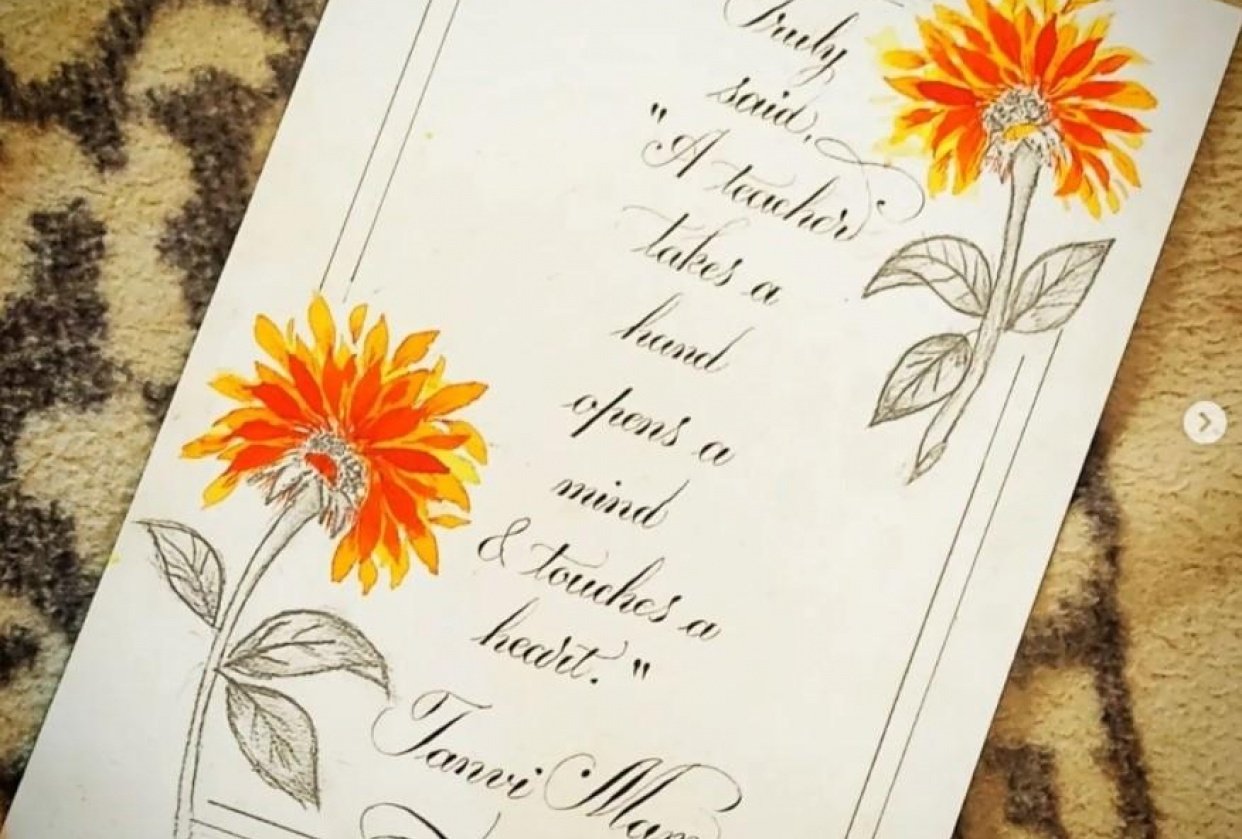 Truly
said,
"A teacher
takes a
hand
opens a
mind
& touches a
heart."
Tanvi Mam